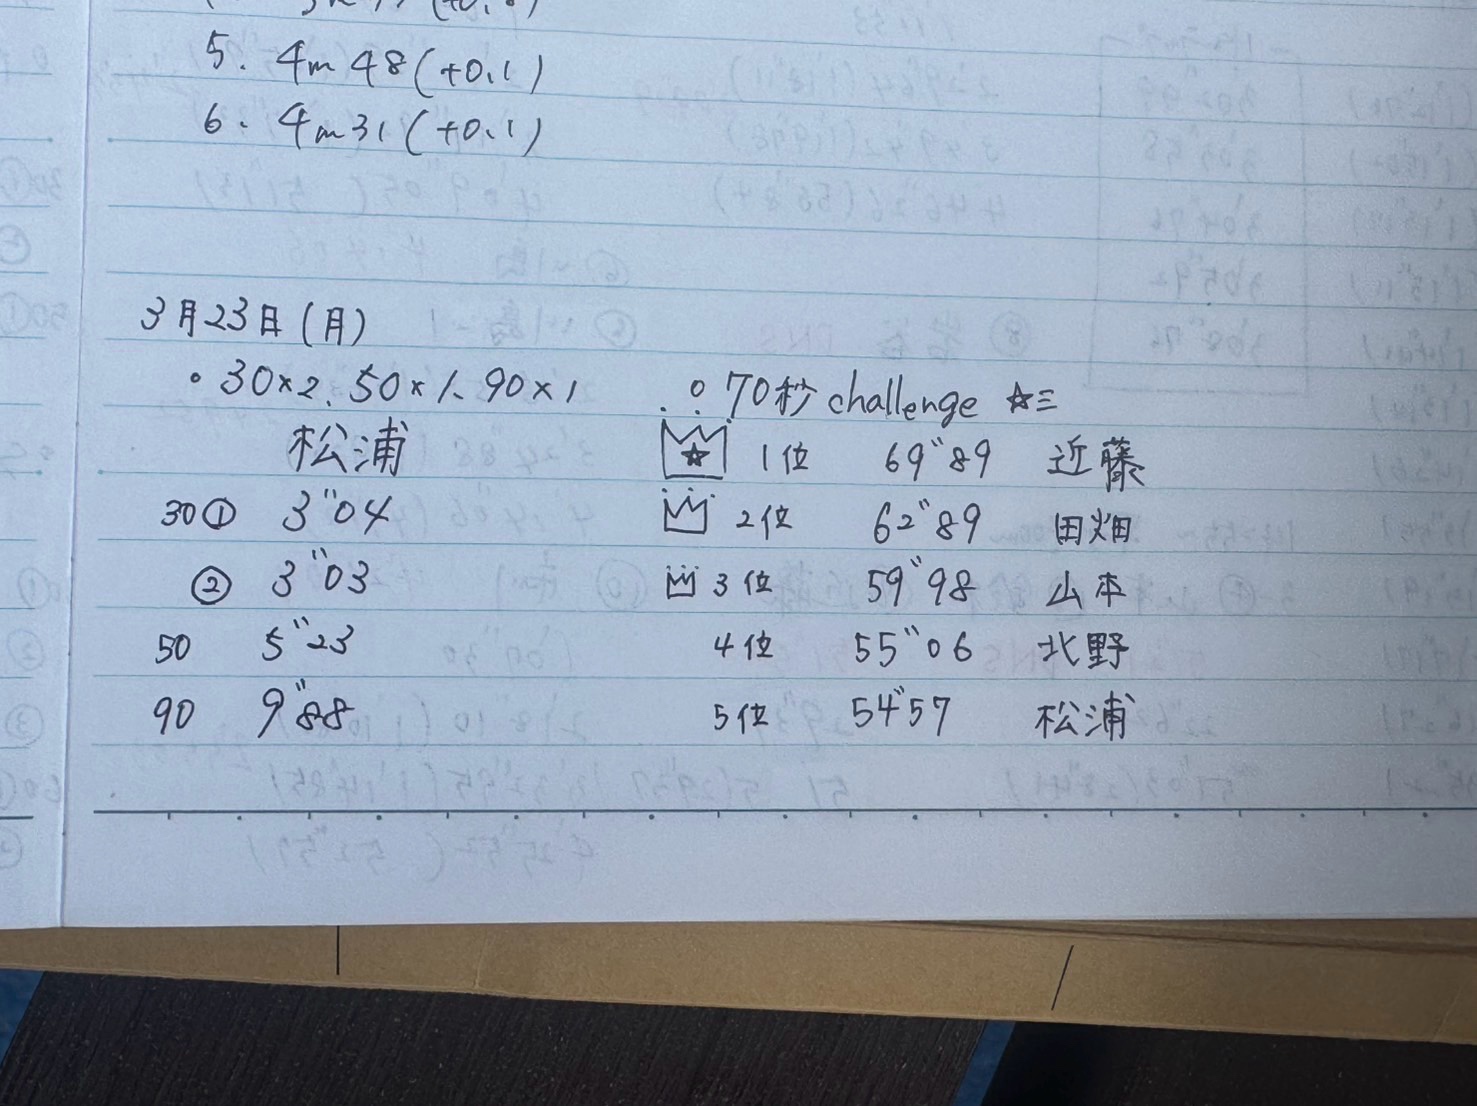 5. 4m48(+0.1)
6. 4m31(+0.1)
3月23日(月)
・30×2、50×1、90×1
松浦
30① 3"04
② 3"03
50 5"23
90 9"88
・70秒challenge ☆三
1位 69"89 近藤
2位 62"89 田畑
3位 59"98 山本
4位 55"06 北野
5位 54"57 松浦